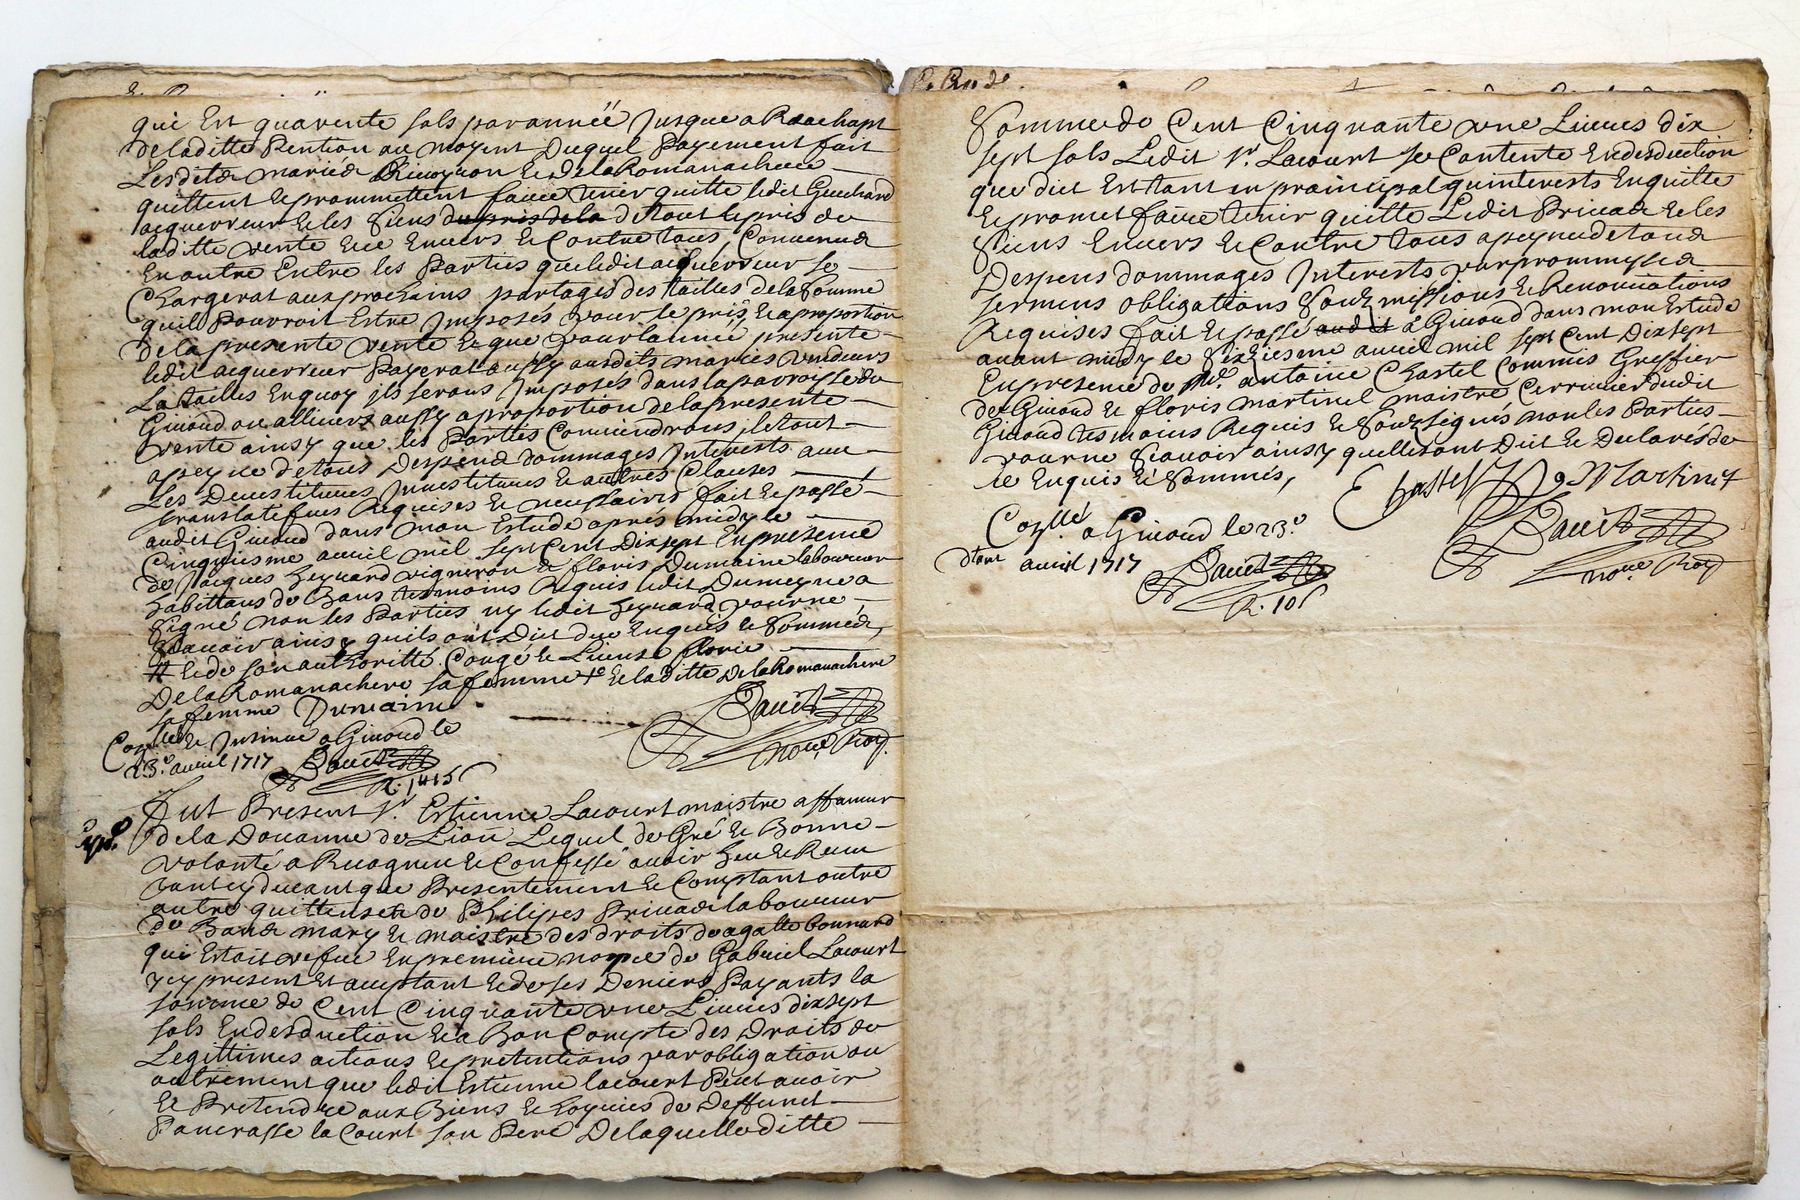 qui Est quarente sols par année Jusque a Raachapt
de laditte Pention au moyent Duquel Payement fait
Lesdits mariés et De la Romanachere
quittent et promettent faire tenir quitte ledit Guichard
acquerreur et les siens du pris de la de tout le pris de
laditte vente et ce Envers et Contre tous, Convenus
En outre Entre les Parties que ledit acquerreur se
Chargerat aux prochains partages des tailles de la somme
quil Pourroit Estre Imposés pour le pris, et a proportion
de la presente vente et que pour lannée presente
ledit acquerreur Payerat aussy ausdits mariés vendeurs
La tailles En quoy ils serons Imposés dans la parroisse de
Givord ou allieurs aussy a proportion de la presente
vente ainsy que les Parties Conviendrons, le tout
a peyne de tous Despens dommages Interests avec
Les Devestitures Investitures et autres Clauses
translatifves Requises et necessaires fait et passé
audit Givord dans mon Estude aprés midy le
Cinquiesme avril mil sept Cent Dixsept En presence
de Jacques vigneron et floris Dumaine laboureur
habittans de Bans tesmoins Requis ledit Dumeyne a
signé non les Parties ny ledit pour ne
sçavoir ainsy quils ont Dit de ce Enquis et sommés,
# et de son authoritté Congé et License florie
De la Romanachere sa femme + et laditte De la Romanachere
sa femme Dumaine
Collé et Insinué a Givord le
23e. avril 1717
noue. Roy.
Fut Present sr. Estienne Lacourt maistre affaneur
de la Douanne de Lion Lequel de Gré et Bonne
volonté a Recogneu et Confessé avoir heu et Receu
tant cy devant que Presentement et Comptant outre
autre quittense de Philipes Privas laboureur
de Bans mary et maistre des droits de agatte bonnard
qui Estoit vefve En premiere nopce de Gabriel Lacourt
y cy present et acceptant et de ses Deniers Payants la
somme de Cent Cinquante une Livres dixsept
sols En desduction et a Bon Compte des Droits de
Legittimes actions et pretentions par obligation ou
autrement que ledit Estienne lacourt Peut avoir
et Pretendre aux Biens et hoyries de Deffunct
Pancrasse la Court son Pere De laquelle ditte
somme de Cent Cinquante une Livres dix
sept sols Ledit sr. Lacourt se Contente En desduction
que dict Est tant en prainicipal quinterests En quitte
et promet faire tenir quitte Ledit Privas et les
siens Envers et Contre tous a peyne de tous
Despens dommages Interests par prommesses
sermens obligations soubzmissions et Renonciations
Requises fait et passé audit a Givord dans mon Estude
avant midy le sixziesme avril mil sept Cent Dixsept
En presence de Me. antoine Chastel Commis Greffier
de Givord et floris martinet maistre Cerrurier dudit
Givord tesmoins Requis et soubzsignés non les Parties
pour ne sçavoir ainsy quelles ont Dit et Declarés de
ce Enquis et sommés,
Chastel Martinet
Collé. a Givord le 23e.
avril 1717
R. 10s
noue. Roy